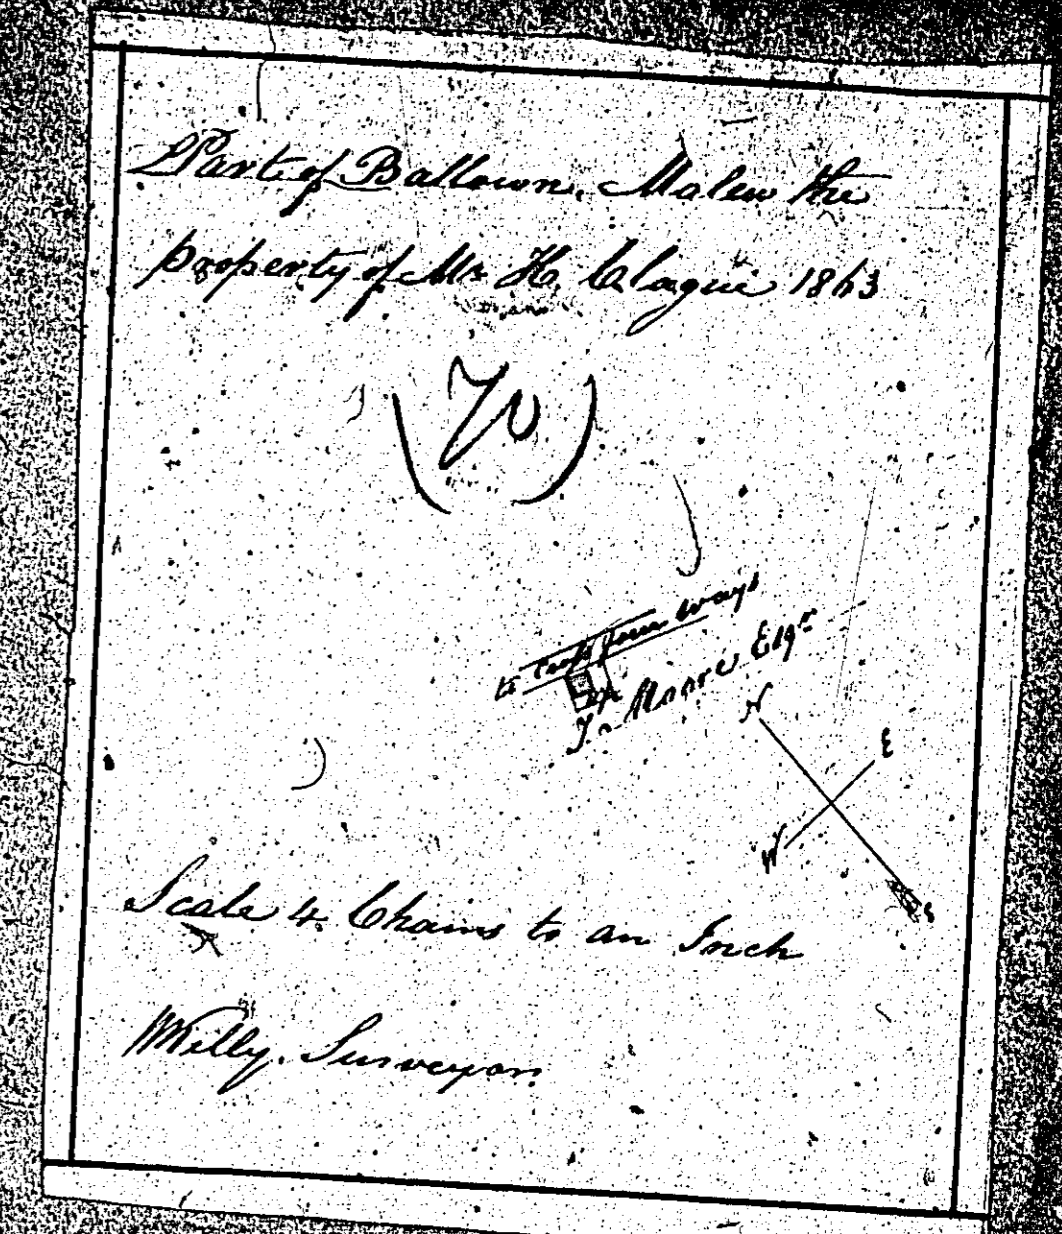 Part of Ballown, Malew the
property of Mr H, Clague 1863
(70)
to Cross four ways
J. Moore Esqr
N
E
W
S
Scale 4 Chains to an Inch
Killy. Surveyor.